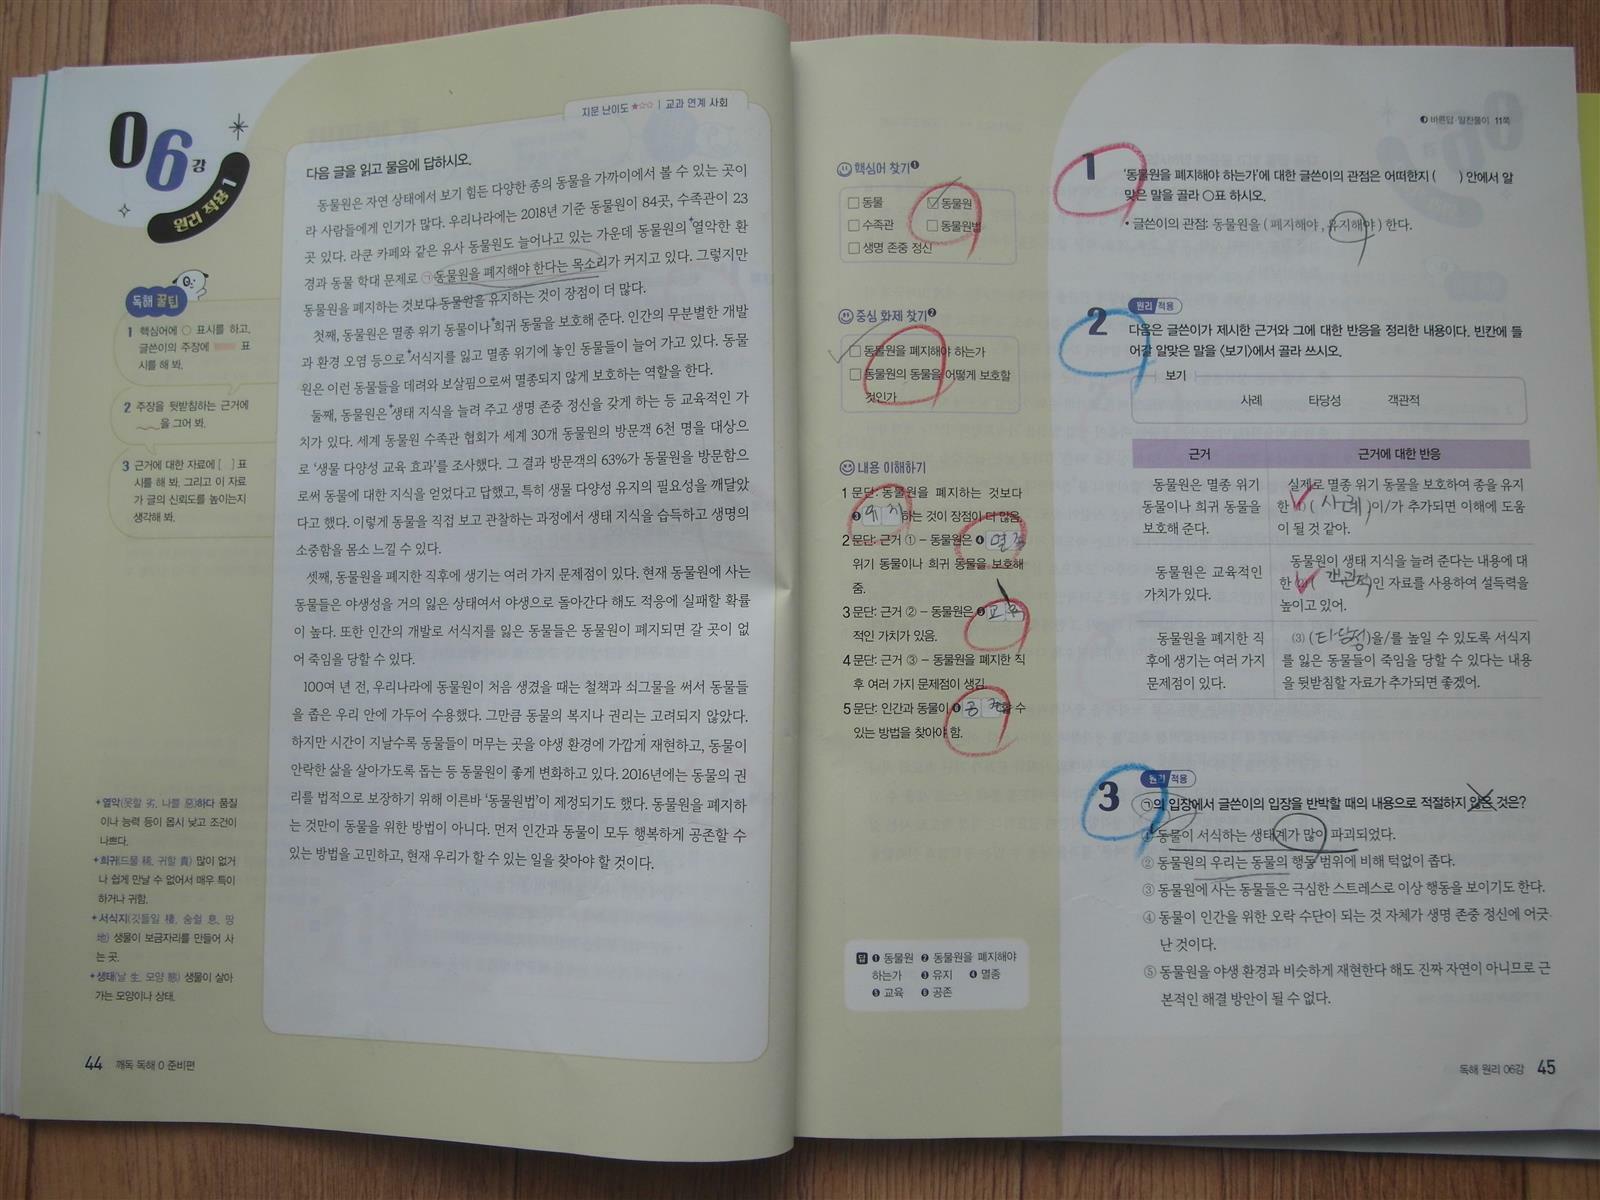 06강
원리 적용 1
지문 난이도 ★☆☆ | 교과 연계 사회
독해 꿀팁
1 핵심어에 ○ 표시를 하고,
글쓴이의 주장에 표
시를 해 봐.
2 주장을 뒷받침하는 근거에
을 그어 봐.
3 근거에 대한 자료에 [ ] 표
시를 해 봐. 그리고 이 자료
가 글의 신뢰도를 높이는지
생각해 봐.
다음 글을 읽고 물음에 답하시오.
동물원은 자연 상태에서 보기 힘든 다양한 종의 동물을 가까이에서 볼 수 있는 곳이
라 사람들에게 인기가 많다. 우리나라에는 2018년 기준 동물원이 84곳, 수족관이 23
곳 있다. 라쿤 카페와 같은 유사 동물원도 늘어나고 있는 가운데 동물원의 열악한 환
경과 동물 학대 문제로 ㉠동물원을 폐지해야 한다는 목소리가 커지고 있다. 그렇지만
동물원을 폐지하는 것보다 동물원을 유지하는 것이 장점이 더 많다.
첫째, 동물원은 멸종 위기 동물이나 희귀 동물을 보호해 준다. 인간의 무분별한 개발
과 환경 오염 등으로 서식지를 잃고 멸종 위기에 놓인 동물들이 늘어 가고 있다. 동물
원은 이런 동물들을 데려와 보살핌으로써 멸종되지 않게 보호하는 역할을 한다.
둘째, 동물원은 생태 지식을 늘려 주고 생명 존중 정신을 갖게 하는 등 교육적인 가
치가 있다. 세계 동물원 수족관 협회가 세계 30개 동물원의 방문객 6천 명을 대상으
로 '생물 다양성 교육 효과'를 조사했다. 그 결과 방문객의 63%가 동물원을 방문함으
로써 동물에 대한 지식을 얻었다고 답했고, 특히 생물 다양성 유지의 필요성을 깨달았
다고 했다. 이렇게 동물을 직접 보고 관찰하는 과정에서 생태 지식을 습득하고 생명의
소중함을 몸소 느낄 수 있다.
셋째, 동물원을 폐지한 직후에 생기는 여러 가지 문제점이 있다. 현재 동물원에 사는
동물들은 야생성을 거의 잃은 상태여서 야생으로 돌아간다 해도 적응에 실패할 확률
이 높다. 또한 인간의 개발로 서식지를 잃은 동물들은 동물원이 폐지되면 갈 곳이 없
어 죽임을 당할 수 있다.
100여 년 전, 우리나라에 동물원이 처음 생겼을 때는 철책과 쇠그물을 써서 동물들
을 좁은 우리 안에 가두어 수용했다. 그만큼 동물의 복지나 권리는 고려되지 않았다.
하지만 시간이 지날수록 동물들이 머무는 곳을 야생 환경에 가깝게 재현하고, 동물이
안락한 삶을 살아가도록 돕는 등 동물원이 좋게 변화하고 있다. 2016년에는 동물의 권
리를 법적으로 보장하기 위해 이른바 '동물원법'이 제정되기도 했다. 동물원을 폐지하
는 것만이 동물을 위한 방법이 아니다. 먼저 인간과 동물이 모두 행복하게 공존할 수
있는 방법을 고민하고, 현재 우리가 할 수 있는 일을 찾아야 할 것이다.
+열악(못할 劣, 나쁠 惡)하다 품질
이나 능력 등이 몹시 낮고 조건이
나쁘다.
+희귀(드물 稀, 귀할 貴) 많이 없거
나 쉽게 만날 수 없어서 매우 특이
하거나 귀함.
+서식지(깃들일 棲, 숨쉴 息, 땅
地) 생물이 보금자리를 만들어 사
는 곳.
+생태(날 生, 모양 態) 생물이 살아
가는 모양이나 상태.
44 깨독 독해 0 준비편
바른답·알찬풀이 11쪽
핵심어 찾기❶
□ 동물 ☑ 동물원
□ 수족관 □ 동물원법
□ 생명 존중 정신
중심 화제 찾기❷
□ 동물원을 폐지해야 하는가
□ 동물원의 동물을 어떻게 보호할
것인가
내용 이해하기
1 문단: 동물원을 폐지하는 것보다
❸ 유지 하는 것이 장점이 더 많음.
2 문단: 근거 ① - 동물원은 ❹ 멸종
위기 동물이나 희귀 동물을 보호해
줌.
3 문단: 근거 ② - 동물원은 ❺ 교육
적인 가치가 있음.
4 문단: 근거 ③ - 동물원을 폐지한 직
후 여러 가지 문제점이 생김.
5 문단: 인간과 동물이 ❻ 공존 할 수
있는 방법을 찾아야 함.
답 ❶ 동물원 ❷ 동물원을 폐지해야
하는가 ❸ 유지 ❹ 멸종
❺ 교육 ❻ 공존
1
'동물원을 폐지해야 하는가'에 대한 글쓴이의 관점은 어떠한지 ( ) 안에서 알
맞은 말을 골라 ○표 하시오.
• 글쓴이의 관점: 동물원을 ( 폐지해야 , 유지해야 ) 한다.
원리 적용
2
다음은 글쓴이가 제시한 근거와 그에 대한 반응을 정리한 내용이다. 빈칸에 들
어갈 알맞은 말을 <보기>에서 골라 쓰시오.
보기
사례 타당성 객관적
근거 근거에 대한 반응
동물원은 멸종 위기
동물이나 희귀 동물을
보호해 준다.
실제로 멸종 위기 동물을 보호하여 종을 유지
한 (1) ( 사례 )이/가 추가되면 이해에 도움
이 될 것 같아.
동물원은 교육적인
가치가 있다.
동물원이 생태 지식을 늘려 준다는 내용에 대
한 (2) ( 객관적 )인 자료를 사용하여 설득력을
높이고 있어.
동물원을 폐지한 직
후에 생기는 여러 가지
문제점이 있다.
(3) ( 타당성 )을/를 높일 수 있도록 서식지
를 잃은 동물들이 죽임을 당할 수 있다는 내용
을 뒷받침할 자료가 추가되면 좋겠어.
원리 적용
3
㉠의 입장에서 글쓴이의 입장을 반박할 때의 내용으로 적절하지 않은 것은?
① 동물이 서식하는 생태계가 많이 파괴되었다.
② 동물원의 우리는 동물의 행동 범위에 비해 턱없이 좁다.
③ 동물원에 사는 동물들은 극심한 스트레스로 이상 행동을 보이기도 한다.
④ 동물이 인간을 위한 오락 수단이 되는 것 자체가 생명 존중 정신에 어긋
난 것이다.
⑤ 동물원을 야생 환경과 비슷하게 재현한다 해도 진짜 자연이 아니므로 근
본적인 해결 방안이 될 수 없다.
독해 원리 06강 45